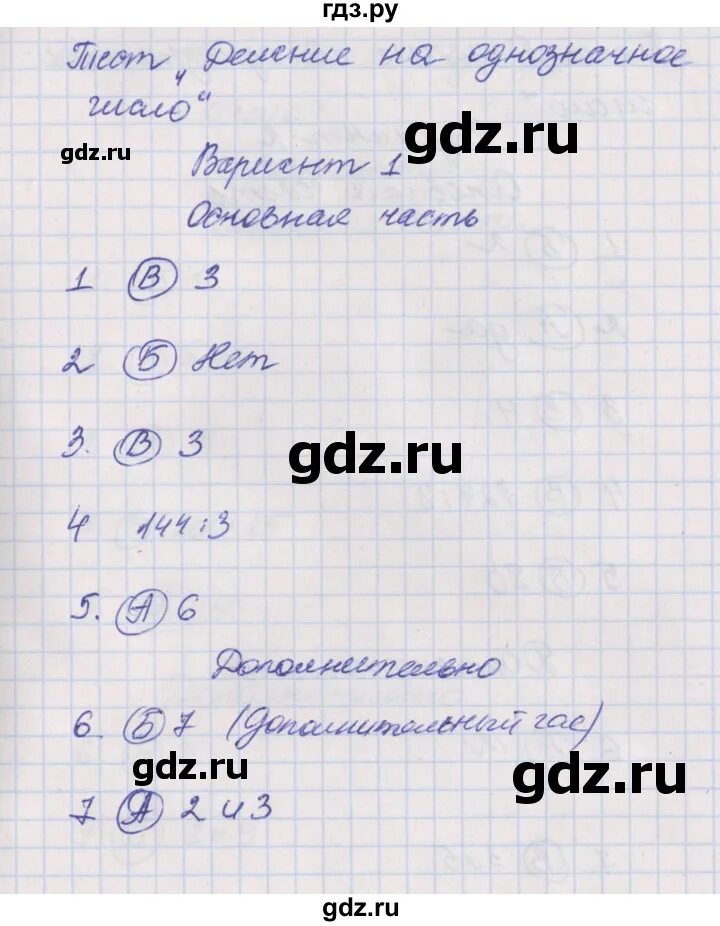 гдз.ру
Тест „Деление на однозначное
число“
gdz.ru
gdz.ru
Вариант 1
Основная часть
1 В 3
2 Б Нет
3. В 3
gdz.ru
4 144:3
5. А 6
Дополнительно
6. Б 7 (Дополнительный час)
gdz.ru
gdz.ru
7 А 2 и 3
gdz.ru